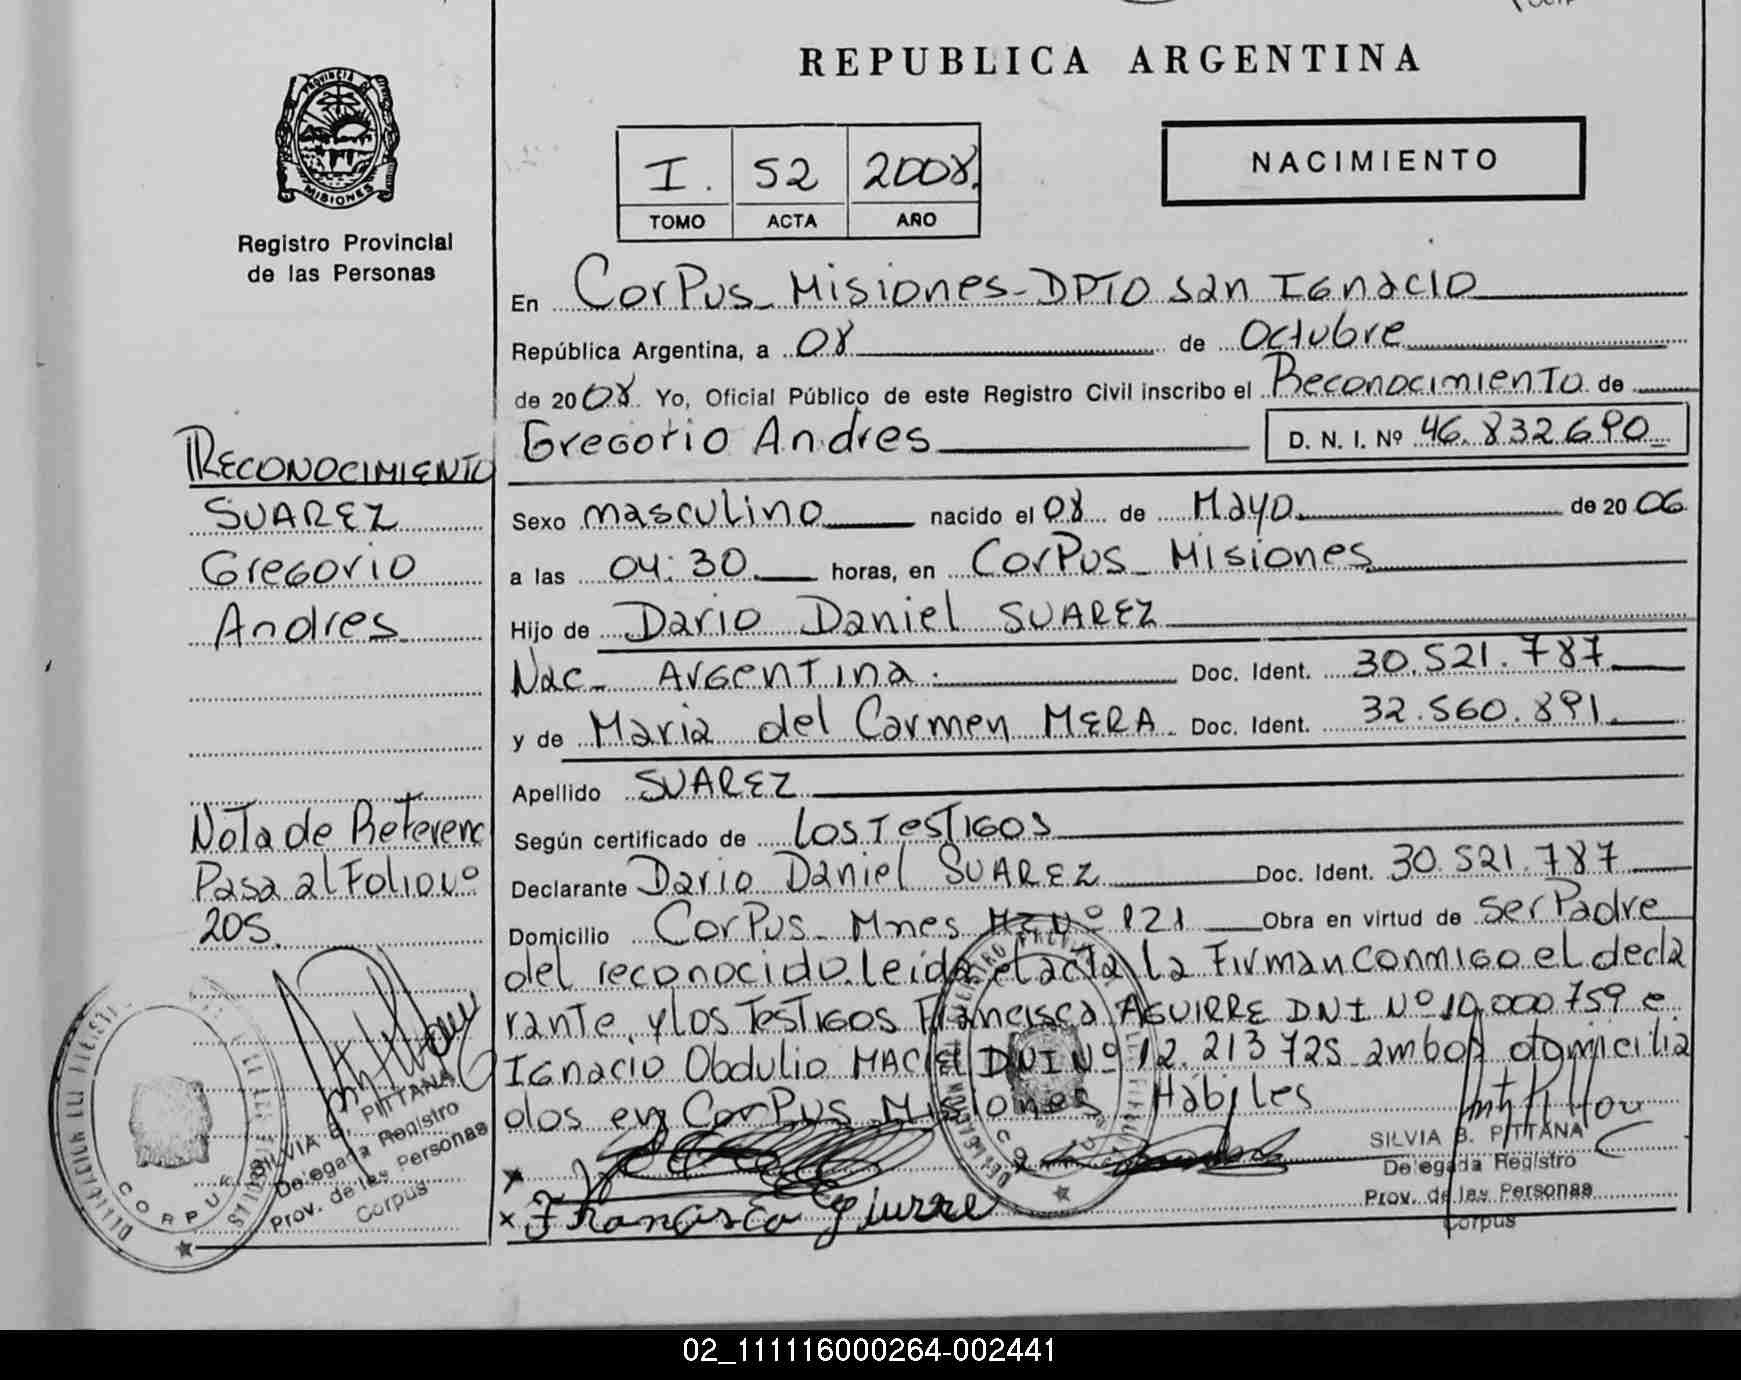 REPUBLICA ARGENTINA
PROVINCIA DE
MISIONES
Registro Provincial
de las Personas
I. 52 2008.
TOMO ACTA AÑO
NACIMIENTO
En CorPus_ Misiones-DPTO san IGnacio
República Argentina, a 08 de Octubre
de 2008. Yo, Oficial Público de este Registro Civil inscribo el ReconocimienTo de
GreGorio Andres D. N. I. Nº 46.832.690_
Sexo masculino nacido el 08 de Mayo de 2006
a las 04:30 horas, en CorPus_ Misiones
Hijo de Dario Daniel SUAREZ
Nac_ ArGenTina. Doc. Ident. 30.521.787
y de Maria del Carmen MERA_ Doc. Ident. 32.560.891
Apellido SUAREZ
Según certificado de Los TesTiGos
Declarante Dario Daniel SUAREZ Doc. Ident. 30.521.787
Domicilio CorPus_ Mnes Mz Nº 121 Obra en virtud de ser Padre
del reconocido.leida el acta la Firman conmiGo el decla
rante y los TesTiGos Francisca AGUIRRE DNI Nº 10.000 759 e
IGnacio Obdulio MACIEL DNI Nº 12.213 725 ambos domicilia
dos en CorPus Misiones Hábiles
RECONOCIMIENTO
SUAREZ
GreGorio
Andres
Nota de Referenc
Pasa al Folio Nº
205.
SILVIA B. PITTANA
Delegada Registro
Prov. de las Personas
Corpus
CORPUS
x
x Francisca
SILVIA B. PITTANA
Delegada Registro
Prov. de las Personas
Corpus
02_111116000264-002441